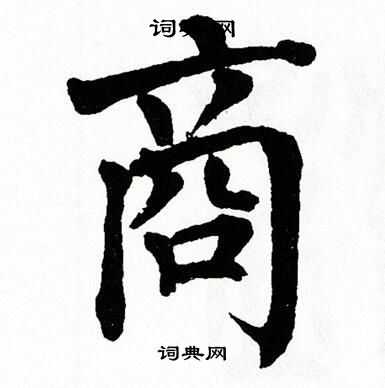 词典网
商
词典网